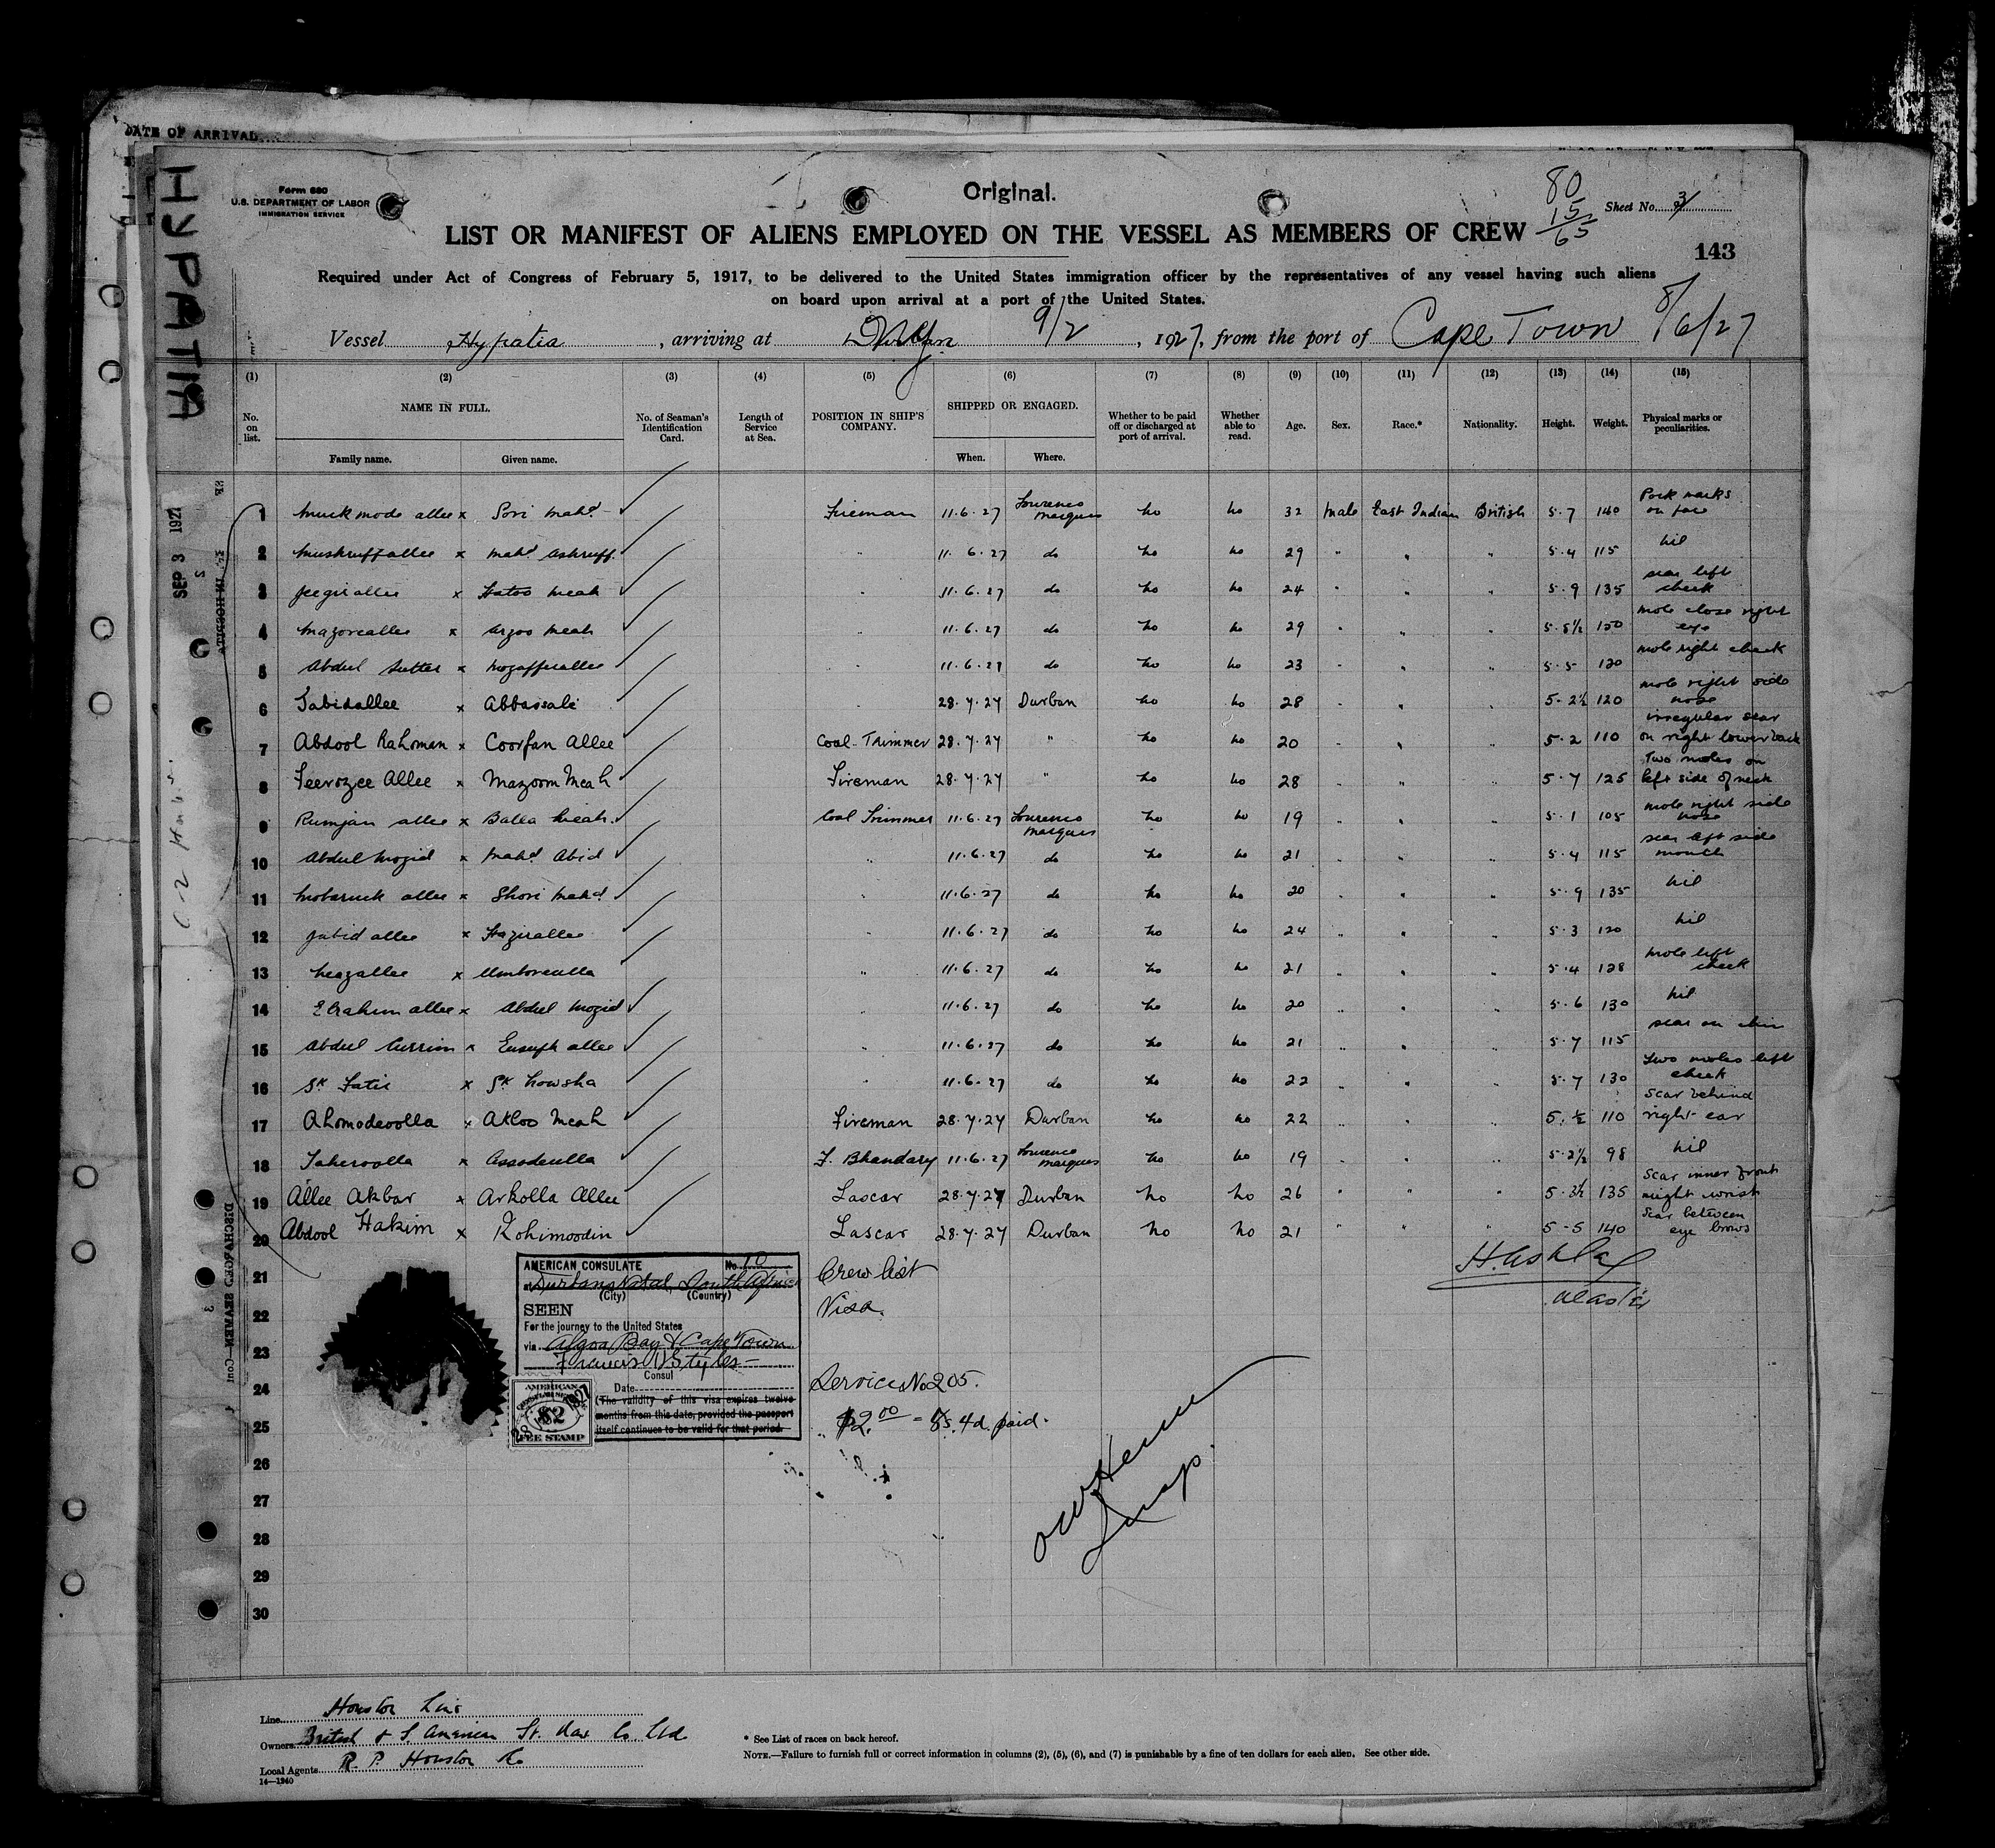 DATE OF ARRIVAL
HYPATIA
Form 680
U.S. DEPARTMENT OF LABOR
IMMIGRATION SERVICE
Original.
80
15
65
Sheet No. 3
LIST OR MANIFEST OF ALIENS EMPLOYED ON THE VESSEL AS MEMBERS OF CREW
143
Required under Act of Congress of February 5, 1917, to be delivered to the United States immigration officer by the representatives of any vessel having such aliens
on board upon arrival at a port of the United States.
Vessel Hypatia, arriving at 9/2, 1927, from the port of Cape Town 8/6/27
(1) (2) (3) (4) (5) (6) (7) (8) (9) (10) (11) (12) (13) (14) (15)
No. on list. NAME IN FULL. No. of Seaman's Identification Card. Length of Service at Sea. POSITION IN SHIP'S COMPANY. SHIPPED OR ENGAGED. Whether to be paid off or discharged at port of arrival. Whether able to read. Age. Sex. Race.* Nationality. Height. Weight. Physical marks or peculiarities.
Family name. Given name. When. Where.
SEP 3 1927
1 muckmode allee x Sori mahd Fireman 11.6.27 Lourenco marques no no 32 male East Indian British 5.7 140 Pock marks on face
2 mushruffallee x mahd Ashruff. " 11.6.27 do no no 29 " " " 5.4 115 nil
3 x Hatoo meah " 11.6.27 do no no 24 " " " 5.9 135 scar left cheek
4 mazoreallee x Argoo meah " 11.6.27 do no no 29 " " " 5.5½ 150 mole close right eye
5 Abdul Sutter x mozafferallee " 11.6.27 do no no 23 " " " 5.5 120 mole right cheek
6 Sabidallee x Abbassali " 28.7.27 Durban no no 28 " " " 5.2½ 120 mole right side nose
7 Abdool Rahoman x Coorfan Allee Coal-Trimmer 28.7.27 " no no 20 " " " 5.2 110 irregular scar on right lower back
8 Feerozee Allee x Mazoom Meah Fireman 28.7.27 " no no 28 " " " 5.7 125 Two moles on left side of neck
9 Rumjan allee x Balla meah Coal Trimmer 11.6.27 Lourenco marques no no 19 " " " 5.1 105 mole right side nose
10 Abdul mozid x mahd Abid " 11.6.27 do no no 21 " " " 5.4 115 scar left side mouth
11 mobaruck allee x Shori mahd " 11.6.27 do no no 20 " " " 5.9 135 nil
12 Jubid allee x Hazirallee " 11.6.27 do no no 24 " " " 5.3 120 nil
13 neazallee x Umboreulla " 11.6.27 do no no 21 " " " 5.4 128 mole left cheek
14 Ebrahim allee x Abdul mozid " 11.6.27 do no no 20 " " " 5.6 130 nil
15 Abdul Currim x Eusuph allee " 11.6.27 do no no 21 " " " 5.7 115 scar on chin
16 Sk Fatir x Sk nowsha " 11.6.27 do no no 22 " " " 5.7 130 two moles left cheek
17 Ahomodeoolla x Akloo Meah Fireman 28.7.27 Durban no no 22 " " " 5.½ 110 scar behind right ear
18 Taheroolla x Assodeulla F. Bhandary 11.6.27 Lourenco marques no no 19 " " " 5.2½ 98 nil
19 Allee Akbar x Arkolla Allee Lascar 28.7.27 Durban no no 26 " " " 5.3½ 135 scar inner front right wrist
20 Abdool Hakim x Rohimoodin Lascar 28.7.27 Durban no no 21 " " " 5-5 140 scar between eye brows
21
22
23
24
25
26
27
28
29
30
AMERICAN CONSULATE No. 10
at Durban, Natal, South Africa
(City) (Country)
SEEN
For the journey to the United States
via Algoa Bay & Cape Town
Francis H Styles
Consul
Date
(The validity of this visa expires twelve
months from this date, provided the passport
itself continues to be valid for that period.
AMERICAN
$2
FEE STAMP
Crew list
Visa.
Service No 205.
$2.00 = 8s. 4d. paid.
Insp.
DISCHARGED SEAMEN—Con
Line Houston Line
Owners British & S. American St. Nav Co Ltd
Local Agents R. P. Houston & Co
14—1240
* See List of races on back hereof.
NOTE.—Failure to furnish full or correct information in columns (2), (5), (6), and (7) is punishable by a fine of ten dollars for each alien. See other side.